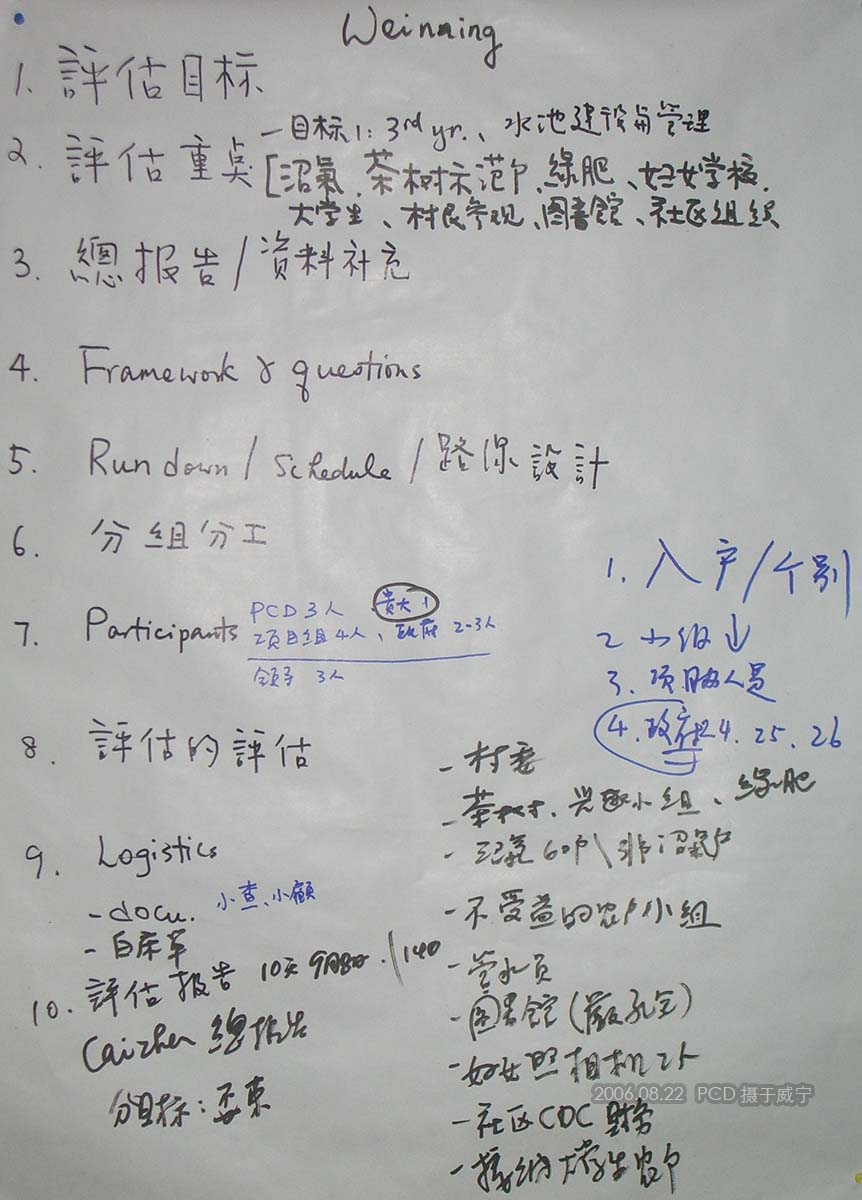 Weinning
1. 評估目标
2. 評估重奌
一目标1: 3rd yr.、水池建设与管理
[沼氣、茶树示范户、綠肥、妇女学校、
大学生、村民参观、图書館、社区组织
3. 總报告/资料补充
4. Framework & questions
5. Run down / Schedule / 路線設計
6. 分组分工
7. Participants
PCD 3人 貴大1
项目组4人、政府 2-3人
领导 3人
8. 評估的評估
9. Logistics
- docu. 小查、小顧
- 白床單
10. 評估报告 10天 9月8日 /140
Caizhen 總报告
分目标:
1. 入户/个别
2 小组↓
3. 项目人员
4. 政府 24. 25. 26
- 村委
- 茶树、兴趣小组、綠肥
- 沼氣60户\非沼氣户
- 不受益的农户小组
- 管水员
- 图書館
- 妇女照相机
- 社区CDC 财务
- 接纳大学生农户
2006.08.22 PCD 摄于威宁